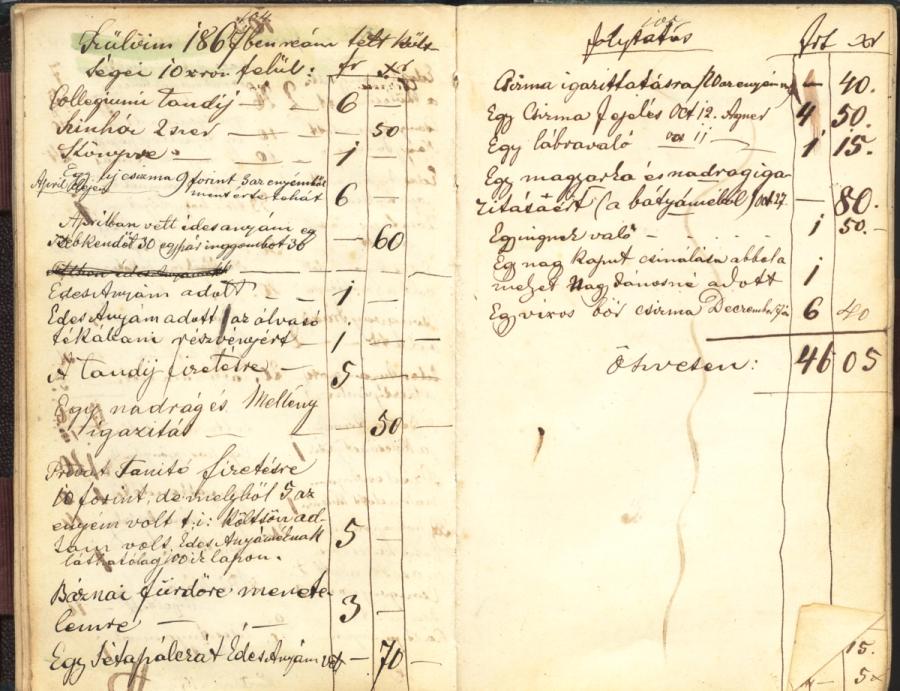 104
Szülőim 1867ben reám tett költ-
ségei 10 xron felül: fr xr
Collegiumi tandij — 6 —
Szinházi 2szer — — 50
Könyvre — 1 —
April elején Egy uj csizma 9 forint 3 az enyémből
ment érte tehát 6 —
Aprilban vett édesanyám eg
zsebkendőt 30 egy pár inggombot 30 — 60
Édes Anyám adott — 1 —
Édes Anyám adott az olvasó
tékában részvényért — 1 —
A tandij fizetésre — 5 —
Egy nadrág és Mellény
igazitás — — 50 —
Privat Tanitó fizetésre
10 forint, de melyből 5 az
enyém volt t.i: költsön ad-
tam volt Édes Anyáméknak
láthatólag 100ik lapon. 5 —
Báznai fürdőre menete-
lemre — 3 —
Egy Sétapálczát Édes Anyám vet — 70 —
105
folytatás frt xr
Csizma igazittatásra — 40.
Egy Csizma fejelés Oct 12. 4 50.
Egy lábravaló 1 15.
Egy magyarka és nadrág iga-
zitásáért (a bátyáméból) Oct 27. — 80.
Egy ingnek való — 1 50.—
Egy nagy kaput csinálása abbola
melyet Nagy Jánosné adott 1
Egy vixos bőr csizma December 6 40
Össvesen: 46 05
15.
5